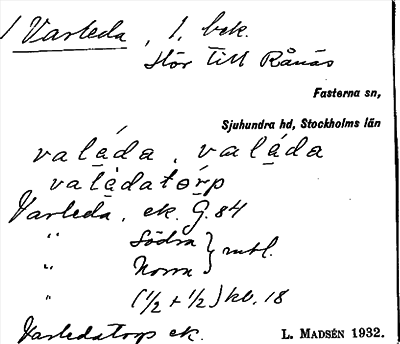 / Varleda, 1. bek.
Hör till Rånäs
Fasterna sn,
Sjuhundra hd, Stockholms län
valáda, valáda
valàdatórp
Varleda, ek. G. 84
" Södra } rutl.
" Norra
" (1/2 + 1/2) kb. 18
Varledatorp ek.
L. MADSÉN 1932.